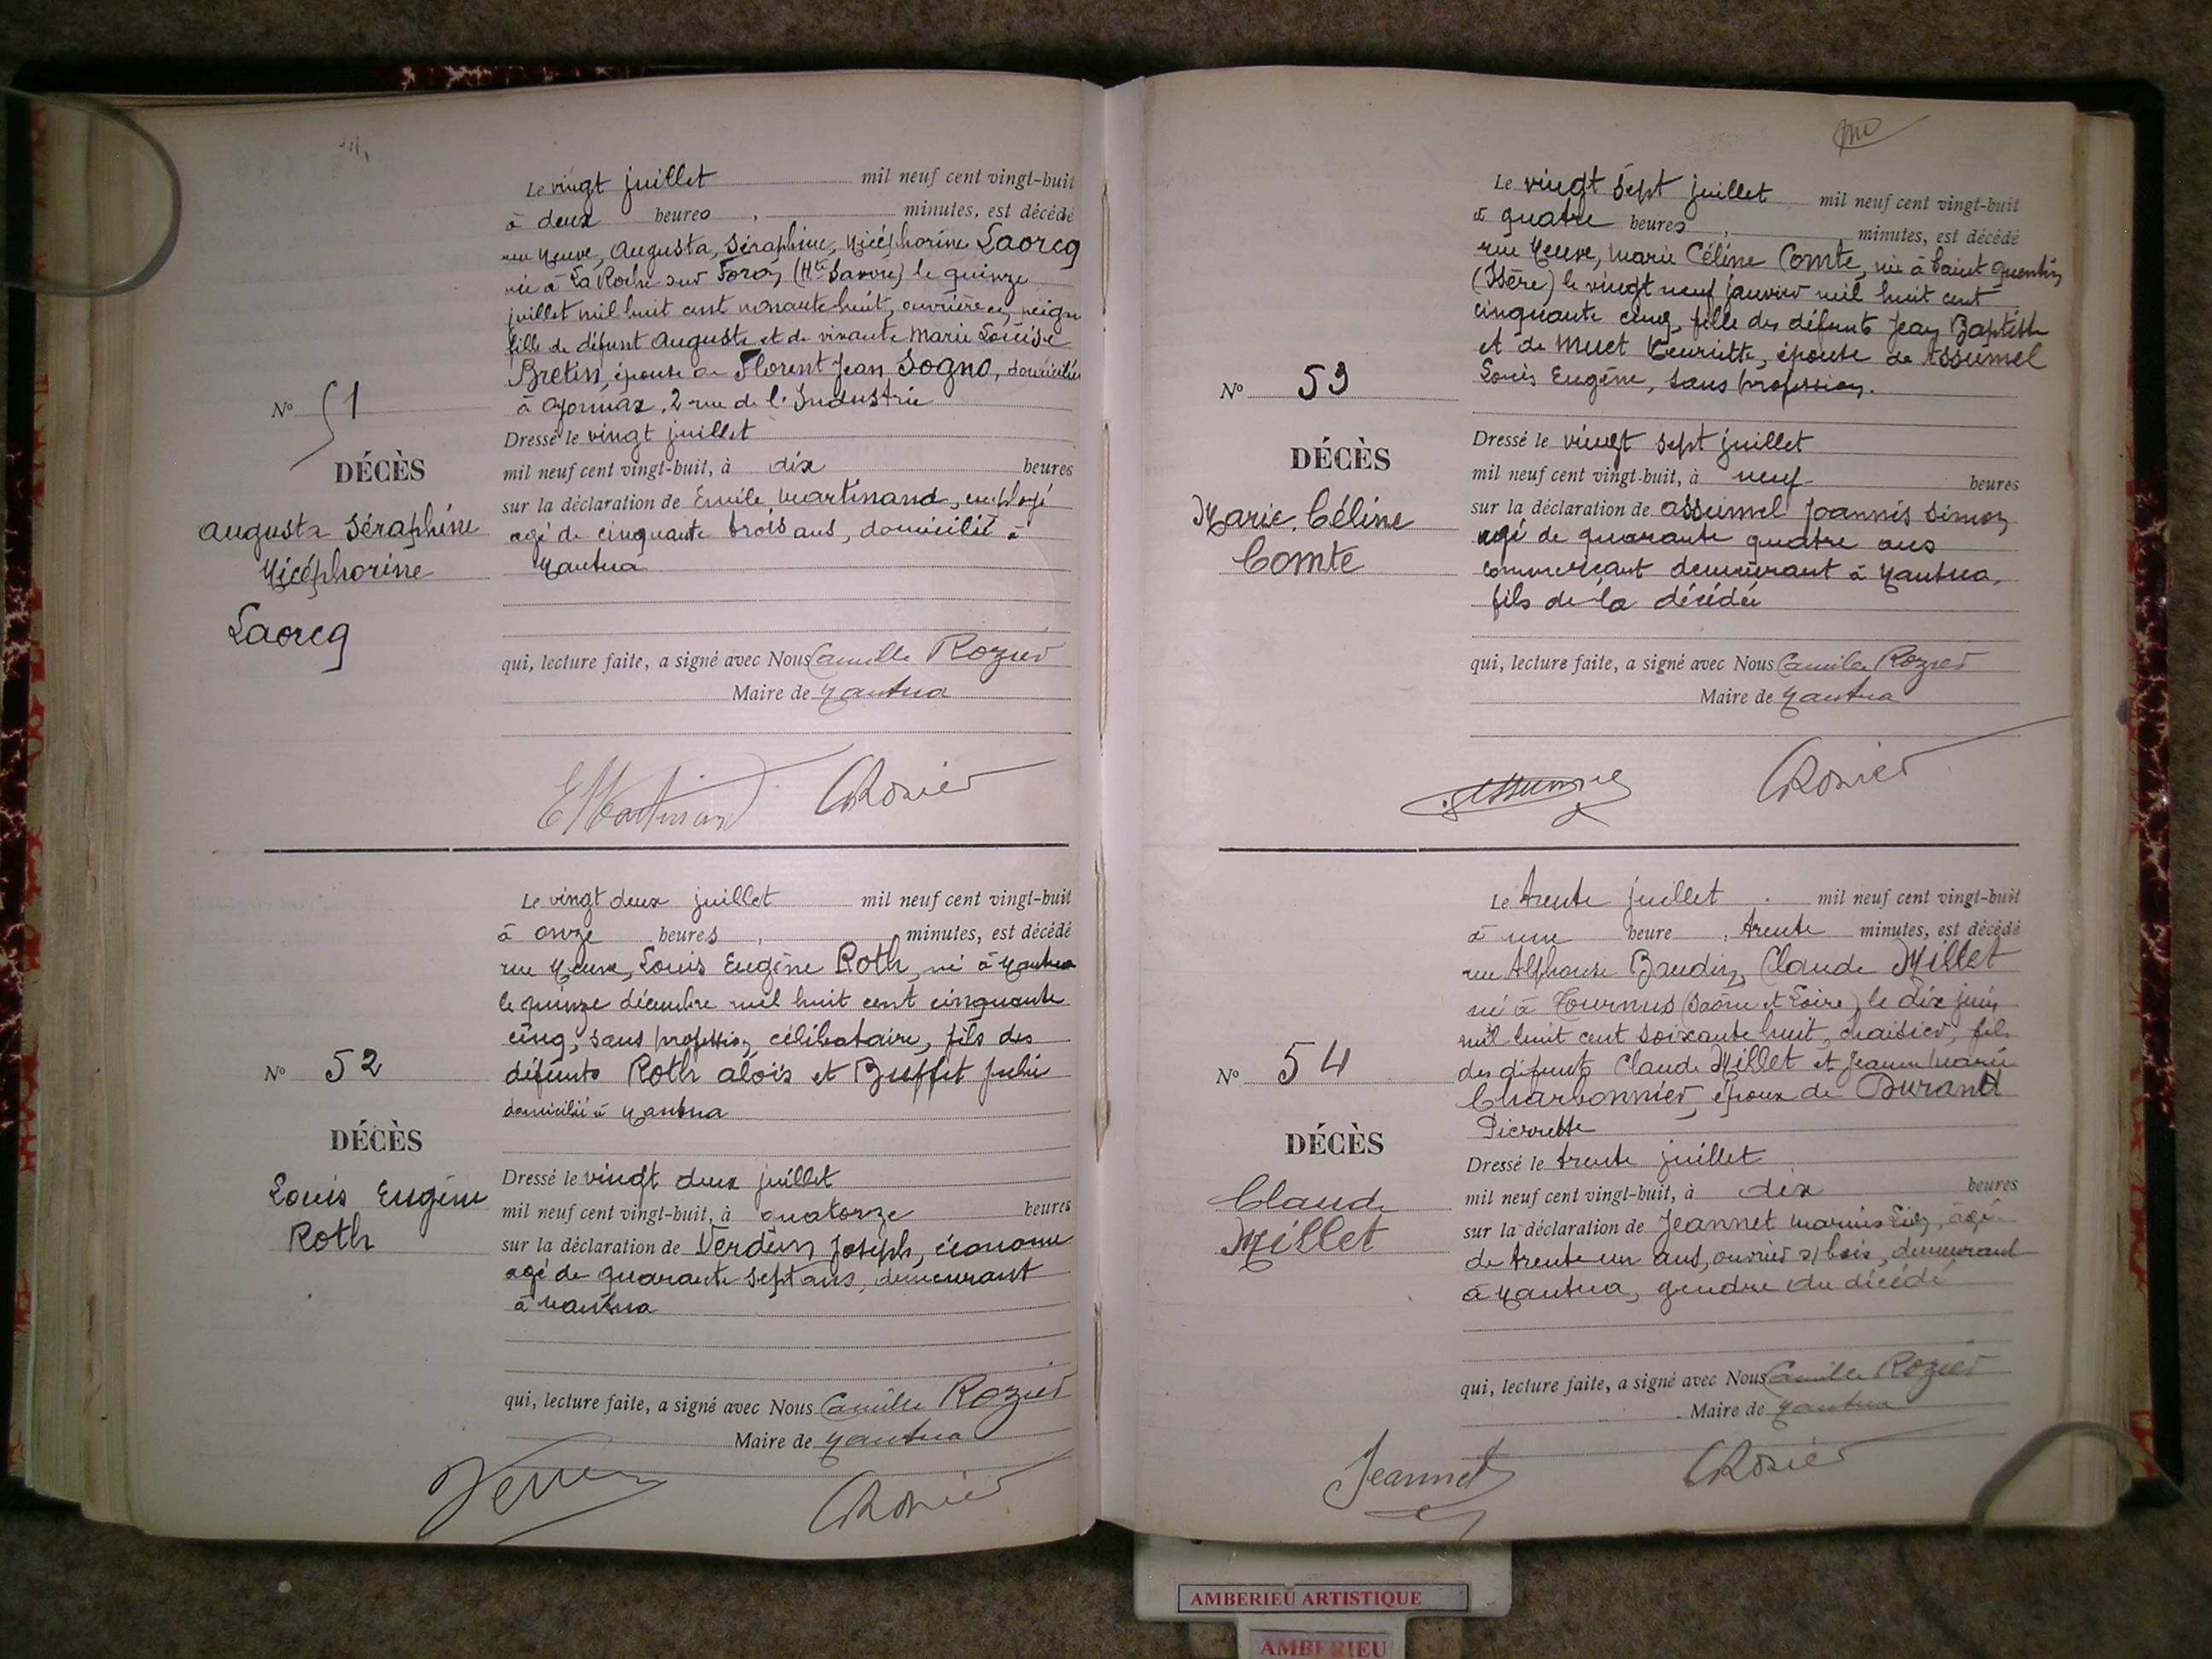 Le vingt juillet mil neuf cent vingt-huit
à deux heures , minutes, est décédé
rue Neuve, Augusta, Séraphine, Nicéphorine Laorcq
née à La Roche sur Foron (Hte Savoie) le quinze
juillet mil huit cent nonante huit, ouvrière en peigne
fille de défunt Auguste et de vivante Marie Louise
Bretin, épouse de Florent Jean Sogno, domiciliée
à Oyonnax, 2 rue de l'Industrie
Nº 51
DÉCÈS
Augusta Séraphine
Nicéphorine
Laorcq
Dressé le vingt juillet
mil neuf cent vingt-huit, à dix heures
sur la déclaration de Emile Martinand, employé
agé de cinquante trois ans, domicilié à
Nantua
qui, lecture faite, a signé avec Nous Camille Rozier
Maire de Nantua
EMartinand CRozier
Le vingt deux juillet mil neuf cent vingt-huit
à onze heures , minutes, est décédé
rue Neuve, Louis Eugène Roth, né à Nantua
le quinze décembre mil huit cent cinquante
cinq, sans profession, célibataire, fils des
défunts Roth Aloïs et Buffet Julie
domicilié à Nantua
Nº 52
DÉCÈS
Louis Eugène
Roth
Dressé le vingt deux juillet
mil neuf cent vingt-huit, à quatorze heures
sur la déclaration de Verdun Joseph, économe
agé de quarante sept ans, demeurant
à Nantua
qui, lecture faite, a signé avec Nous Camille Rozier
Maire de Nantua
CRozier
Le vingt sept juillet mil neuf cent vingt-huit
à quatre heures , minutes, est décédé
rue Neuve, Marie Céline Comte, née à Saint Quentin
(Isère) le vingt neuf janvier mil huit cent
cinquante cinq, fille des défunts Jean Baptiste
et de Muet Henriette, épouse de Assumel
Louis Eugène, sans profession.
Nº 53
DÉCÈS
Marie Céline
Comte
Dressé le vingt sept juillet
mil neuf cent vingt-huit, à neuf heures
sur la déclaration de Assumel Joannès Simon
agé de quarante quatre ans
commerçant demeurant à Nantua,
fils de la décédée
qui, lecture faite, a signé avec Nous Camille Rozier
Maire de Nantua
CRozier
Le trente juillet mil neuf cent vingt-huit
à une heure , trente minutes, est décédé
rue Alphonse Baudin, Claude Millet
né à Tournus (Saône et Loire) le dix juin
mil huit cent soixante huit, chaisier, fils
des défunts Claude Millet et Jeanne Marie
Charbonnier, époux de Durand
Pierrette
Nº 54
DÉCÈS
Claude
Millet
Dressé le trente juillet
mil neuf cent vingt-huit, à dix heures
sur la déclaration de Jeannet Marius, agé
de trente un ans, ouvrier s/bois, demeurant
à Nantua, gendre du décédé
qui, lecture faite, a signé avec Nous Camille Rozier
Maire de Nantua
Jeannet CRozier
AMBERIEU ARTISTIQUE
AMBERIEU